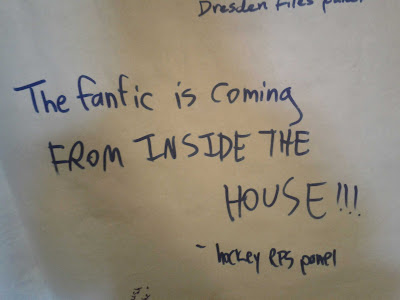 Dresden Files panel
The fanfic is coming
FROM INSIDE THE
HOUSE!!!
- hockey RPS panel